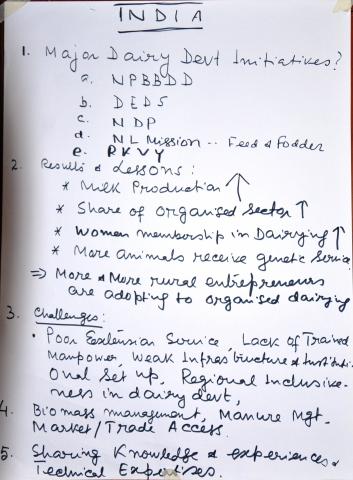 INDIA
1. Major Dairy Devt Initiatives?
a. NPBBDD
b. DEDS
c. NDP
d. NL Mission -- Feed & Fodder
e. RKVY
2. Results & Lessons:
* Milk Production ↑
* Share of organised sector ↑
* Women membership in Dairying ↑
* More animals receive genetic service
⇒ More & More rural entrepreneurs
are adopting to organised dairying
3. Challenges:
• Poor Extension Service, Lack of Trained
Manpower, Weak Infrastructure & Instituti-
onal Set up, Regional Inclusive-
ness in dairy devt,
4. Biomass management, Manure Mgt.
Market/Trade Access.
5. Sharing Knowledge & experiences &
Technical Expertises.